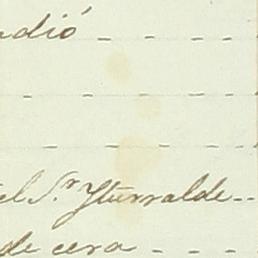 ndió - - - -
el Sr. Yturralde - -
de cera - - - -